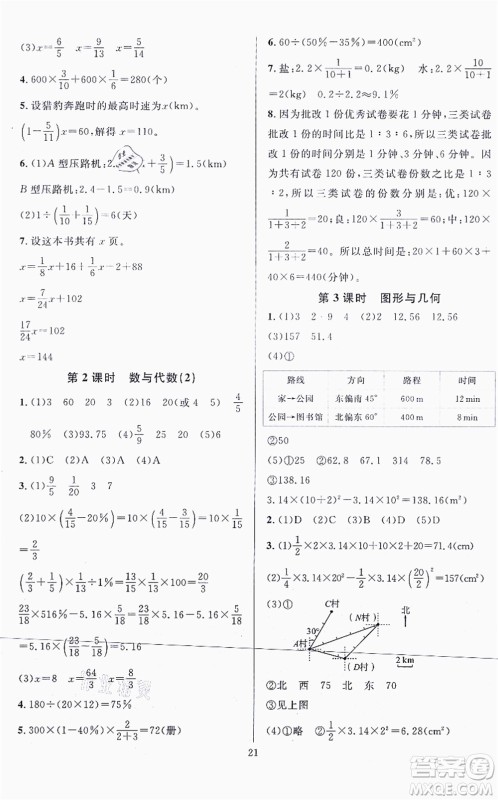 (3)x=6/5 x=9/13 x=4/15
4.600×3/10+600×1/6=280(个)
5.设猎豹奔跑时的最高时速为x(km).
(1-5/11)x=60,解得x=110.
6.(1)A型压路机:2.4÷(1+3/5)=1.5(km)
B型压路机:2.4-1.5=0.9(km)
(2)1÷(1/10+1/15)=6(天)
7.设这本书共有x页.
x=1/8x+16+1/6x-2+88
x=7/24x+102
17/24x=102
x=144
第2课时 数与代数(2)
1.(1)3 60 20 3 (2)16(或4) 20 4/5
80% (3)90 60 (4)5/9 >
2.(1)C (2)A (3)C (4)A
3.(1)9/20 1/15 3 7
(2)10×(4/15-20%)=10×(4/15-3/15)=10×1/15=
2/3
(2/3+1/5)×1/15÷1%=13/15×1/15×100=52/9
23/18×516%-5.16×5/18=23/18×5.16-5.16×5/18=
5.16×(23/18-5/18)=5.16
(3)x=8 x=64/3 x=8/3
4.180÷(1-10%)=200(元)
5.300×(1-40%)×2/(2+3)=72(册)
6.60÷(50%-35%)=400(cm²)
7.盐:2.2×1/(10+1)=0.2(kg) 水:2.2×10/(10+1)=
2(kg) 0.2÷2.2≈9.1%
8.因为批改1份优秀试卷要花1分钟,三类试卷
批改1份的时间比是1∶3∶6,所以三类试卷批
改1份的时间分别是1分钟、3分钟、6分钟.
因为共有试卷120份,三类试卷份数之比是1∶3
∶2,所以三类试卷的份数分别为优:120×
1/(1+3+2)=20(份);良:120×3/(1+3+2)=60(份);
中:120×2/(1+3+2)=40(份).
所以总时间为20×1+60×3+
40×6=440(分钟).
第3课时 图形与几何
1.(1)3 2 9 4 (2)2 12.56 12.56
(3)157 51.4
(4)①
路线 方向 路程 时间
家→公园 东偏南45° 600m 12min
公园→图书馆 北偏东 400m 8min
②50
(5)①25 ②36 62.8 ③4.71
①138.16
3.14×(10÷2)²+3.14×10×2-3.14×2²=138.16(cm²)
2.(1)D (2)C (3)D (4)A
3.(1)1/2×2×3.14×10+10×2=51.4(cm)
(2)1/4×3.14×20²-1/2×3.14×(20/2)²=157(cm²)
(3)①
C村 北 (N村) 30° A村 (D村) 2km
②北 西 75 北 东 70
③见上图
(4)①略 ②1/2×3.14×2²=6.28(cm²)
21